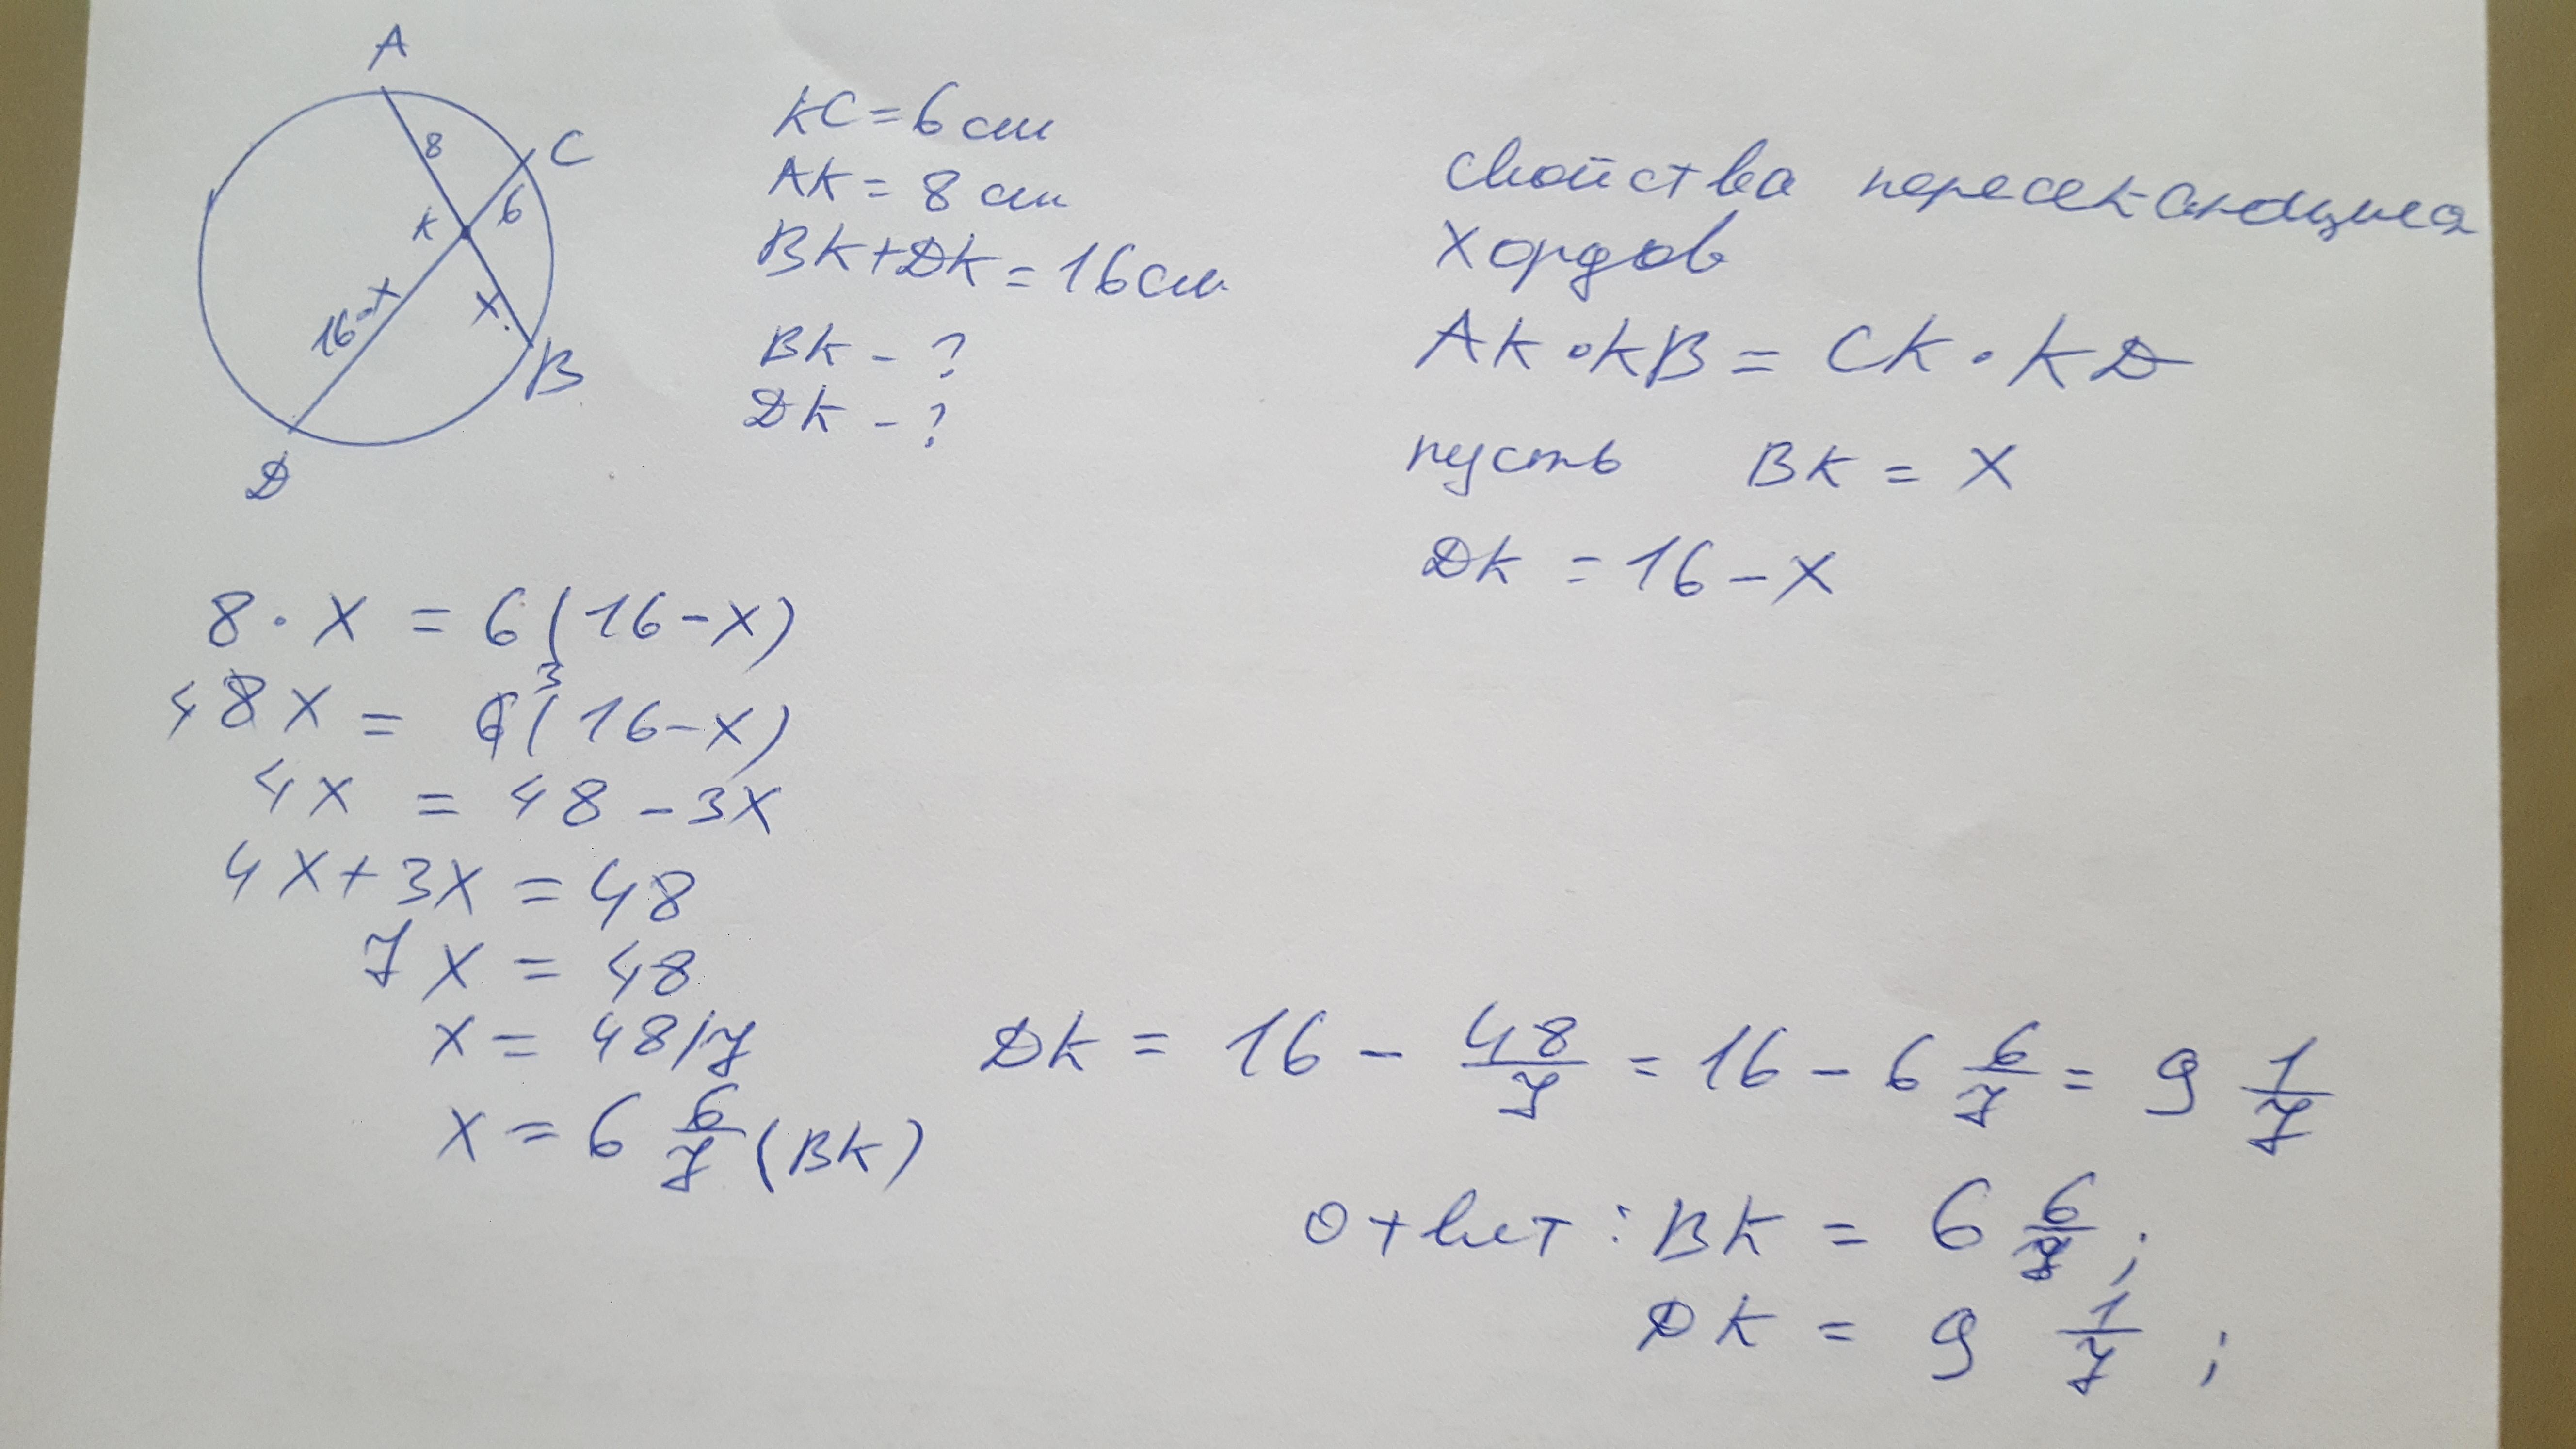 A
8
C
6
K
16-x
x
B
D
KC = 6 см
AK = 8 см
BK + DK = 16 см
BK - ?
DK - ?
свойства
хордов
AK · KB = CK · KD
пусть BK = x
DK = 16 - x
8 · x = 6 (16 - x)
4 8 x = 6 3 (16 - x)
4x = 48 - 3x
4x + 3x = 48
7x = 48
x = 48/7
x = 6 6/7 (BK)
DK = 16 - 48/7 = 16 - 6 6/7 = 9 1/7
ответ : BK = 6 6/7 ;
DK = 9 1/7 ;